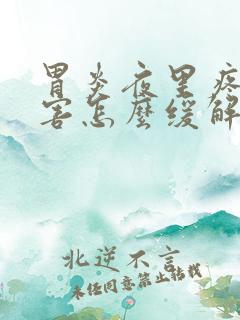 胃炎夜里疼
害怎么缓解
北逆不言
未经同意禁止转载